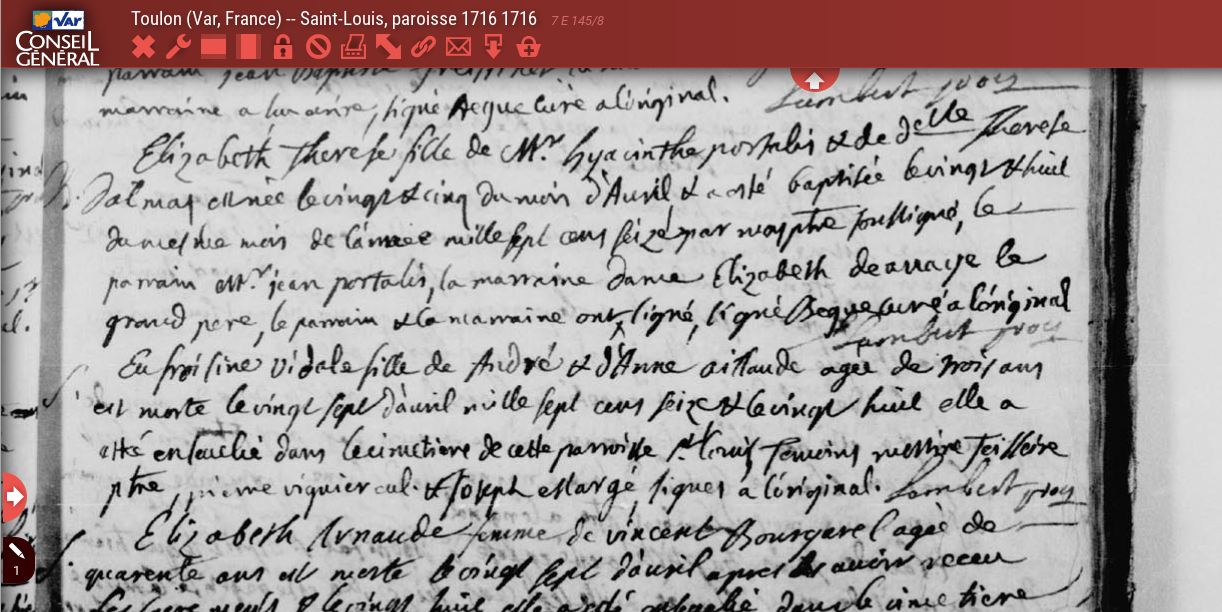 Toulon (Var, France) -- Saint-Louis, paroisse 1716 1716 7 E 145/8
VAR
CONSEIL
GÉNÉRAL
parrain jean baptiste
marraine a lun autre, signé Beque curé a l'original. Lambert prov
Elizabeth Therese fille de Mr. hyacinthe portalis & de delle Therese
Dalmas est née le vingt & cinq du mois d'Avril & a esté baptisée le vingt & huit
du mesme mois de l'année mille sept cens seize par nous ptre soussigné, le
parrain Mr. jean portalis, la marraine dame Elizabeth
grand pere, le parrain & la marraine ont signé, signé Beque curé a l'original
Lambert prov
Eufroisine Vidale fille de André & d'Anne aillaude agée de trois ans
est morte le vingt sept d'avril mille sept cens seize & le vingt huit elle a
esté ensevelie dans le cimetiere de cette parroisse St. Louis, Temoins messire
ptre, pierre viguier & Joseph signés a l'original. Lambert prov
Elizabeth Arnaude femme de vincent Bourgarel agée de
quarente ans est morte le vingt sept d'avril apres avoir receu
les sacrements & le vingt huit elle a esté ensevelie dans le cimetiere
1